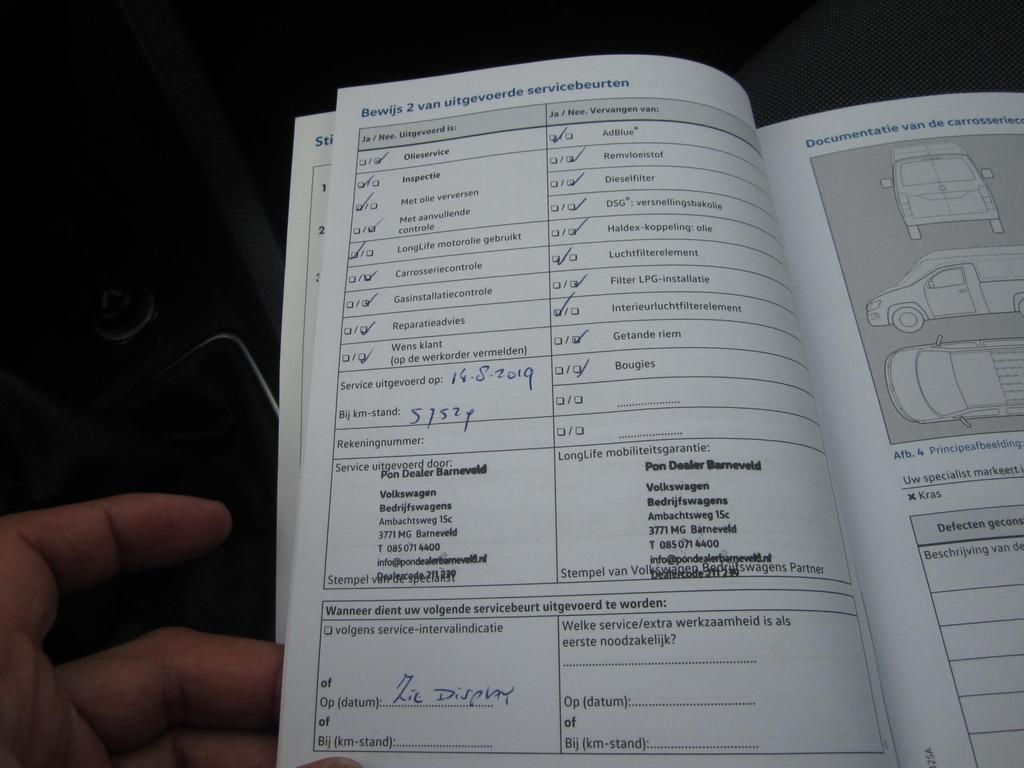 Bewijs 2 van uitgevoerde servicebeurten
Ja / Nee. Uitgevoerd is:
Olieservice
Inspectie
Met olie verversen
Met aanvullende
controle
LongLife motorolie gebruikt
Carrosseriecontrole
Gasinstallatiecontrole
Reparatieadvies
Wens klant
(op de werkorder vermelden)
Service uitgevoerd op: 14-8-2019
Bij km-stand:
Rekeningnummer:
Service uitgevoerd door:
Pon Dealer Barneveld
Volkswagen
Bedrijfswagens
Ambachtsweg 15c
3771 MG Barneveld
T 085 071 4400
info@pondealerbarneveld.nl
Dealercode 211 239
Stempel van de specialist
Ja / Nee. Vervangen van:
AdBlue®
Remvloeistof
Dieselfilter
DSG®: versnellingsbakolie
Haldex-koppeling: olie
Luchtfilterelement
Filter LPG-installatie
Interieurluchtfilterelement
Getande riem
Bougies
LongLife mobiliteitsgarantie:
Pon Dealer Barneveld
Volkswagen
Bedrijfswagens
Ambachtsweg 15c
3771 MG Barneveld
T 085 071 4400
info@pondealerbarneveld.nl
Dealercode 211 239
Stempel van Volkswagen Bedrijfswagens Partner
Wanneer dient uw volgende servicebeurt uitgevoerd te worden:
volgens service-intervalindicatie
of
Op (datum): Zie Display
of
Bij (km-stand):
Welke service/extra werkzaamheid is als
eerste noodzakelijk?
Op (datum):
of
Bij (km-stand):
Sti
1
2
Documentatie van de carrosseriec
Afb. 4 Principeafbeelding:
Uw specialist markeert
× Kras
Defecten gecons
Beschrijving van de